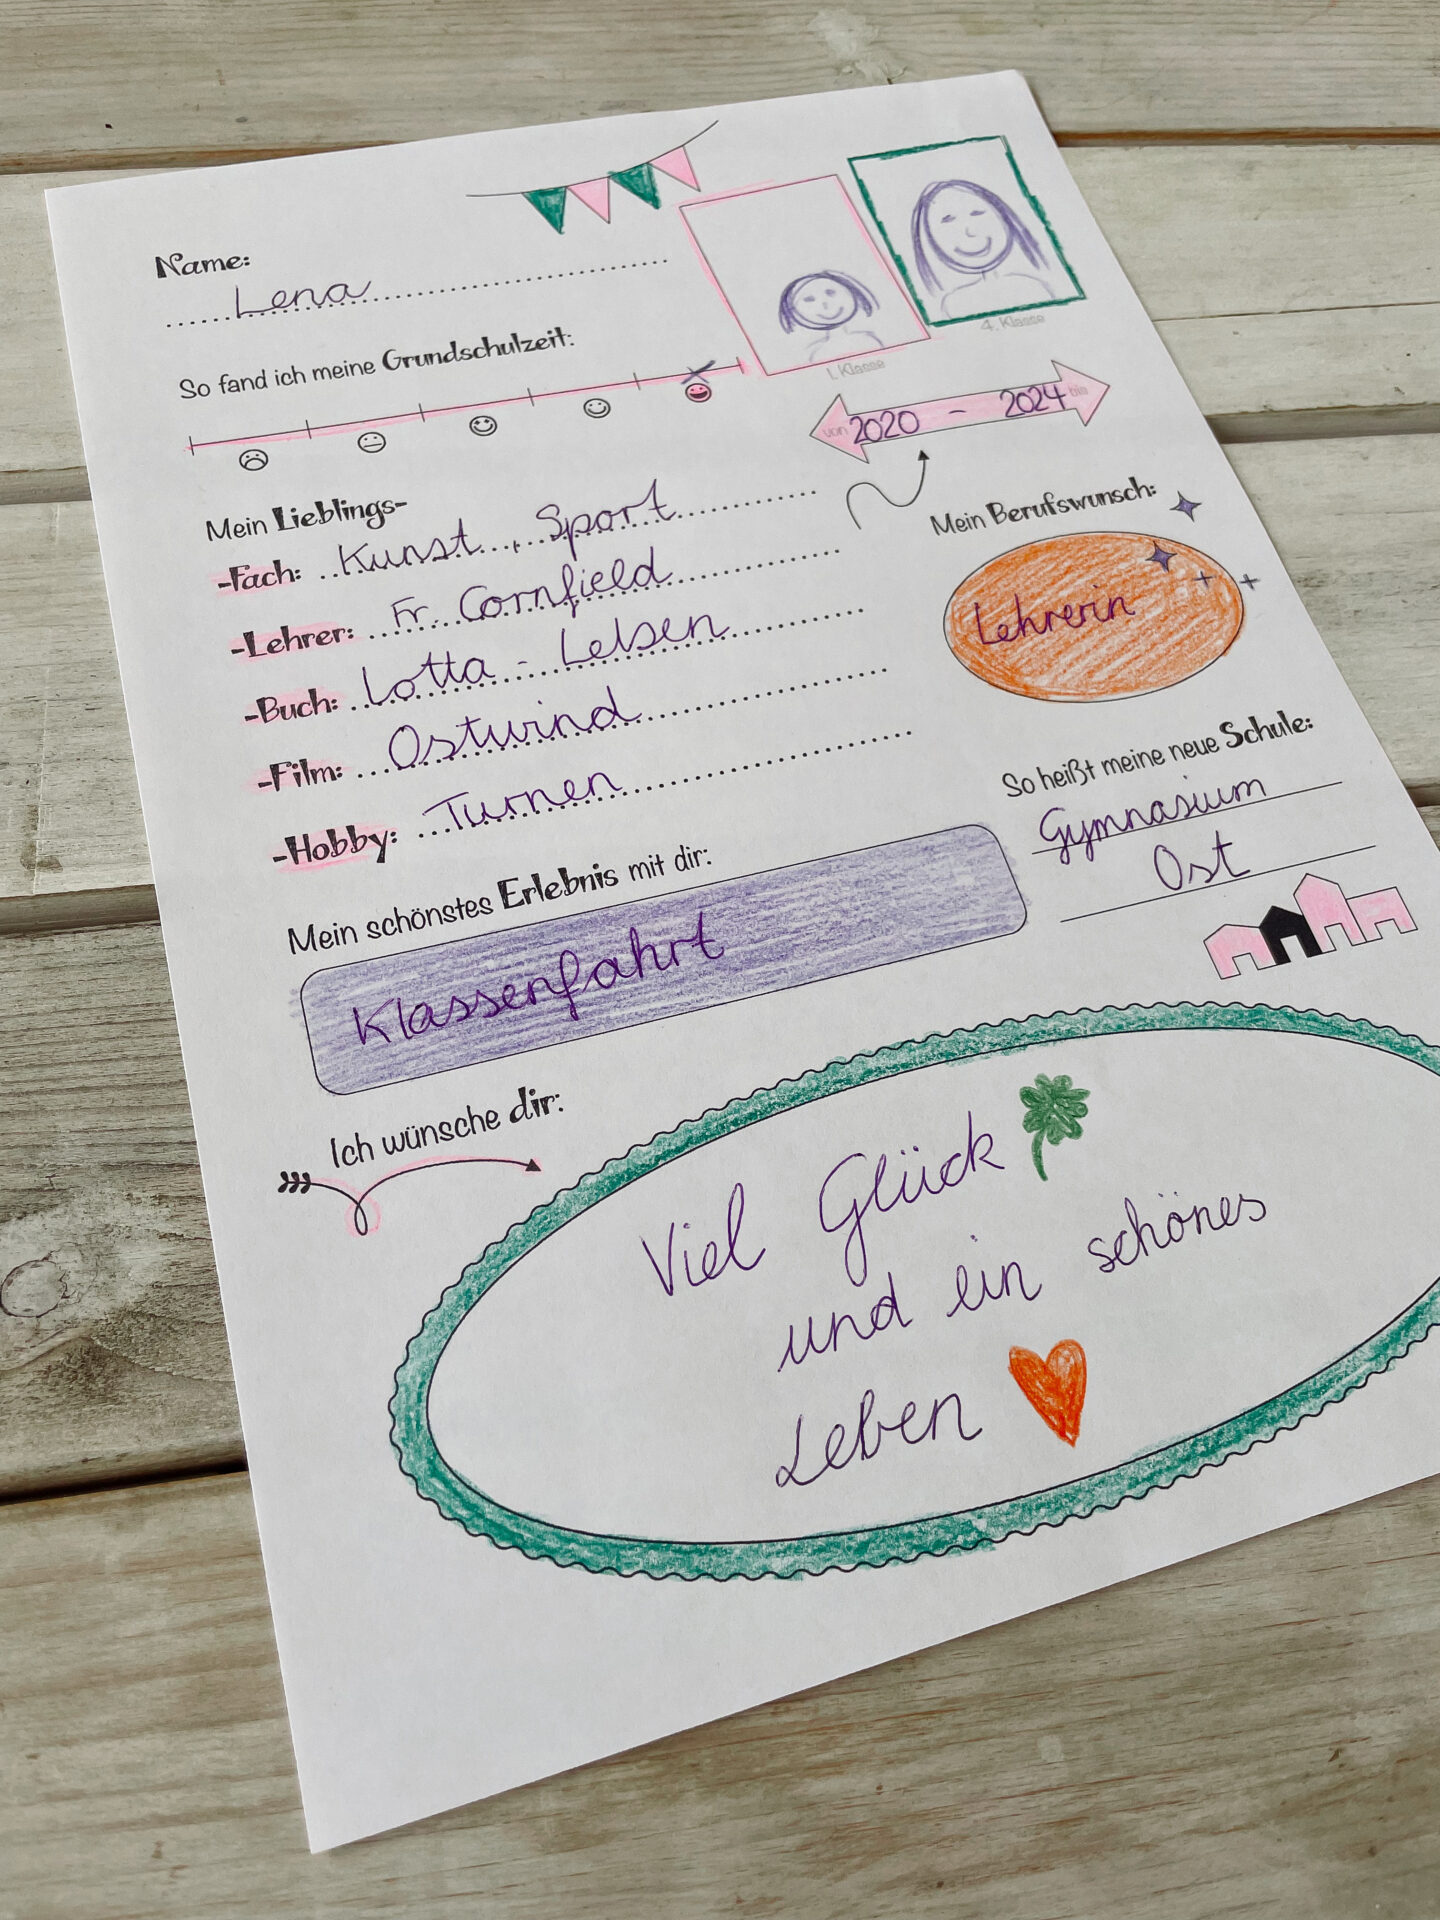 Name:
Lena
So fand ich meine Grundschulzeit:
1. Klasse
4. Klasse
von 2020 - 2024 bis
Mein Lieblings-
-Fach: Kunst, Sport
-Lehrer: Fr. Cornfield
-Buch: Lotta - Leben
-Film: Ostwind
-Hobby: Turnen
Mein Berufswunsch:
Lehrerin
So heißt meine neue Schule:
Gymnasium
Ost
Mein schönstes Erlebnis mit dir:
Klassenfahrt
Ich wünsche dir:
Viel Glück
und ein schönes
Leben